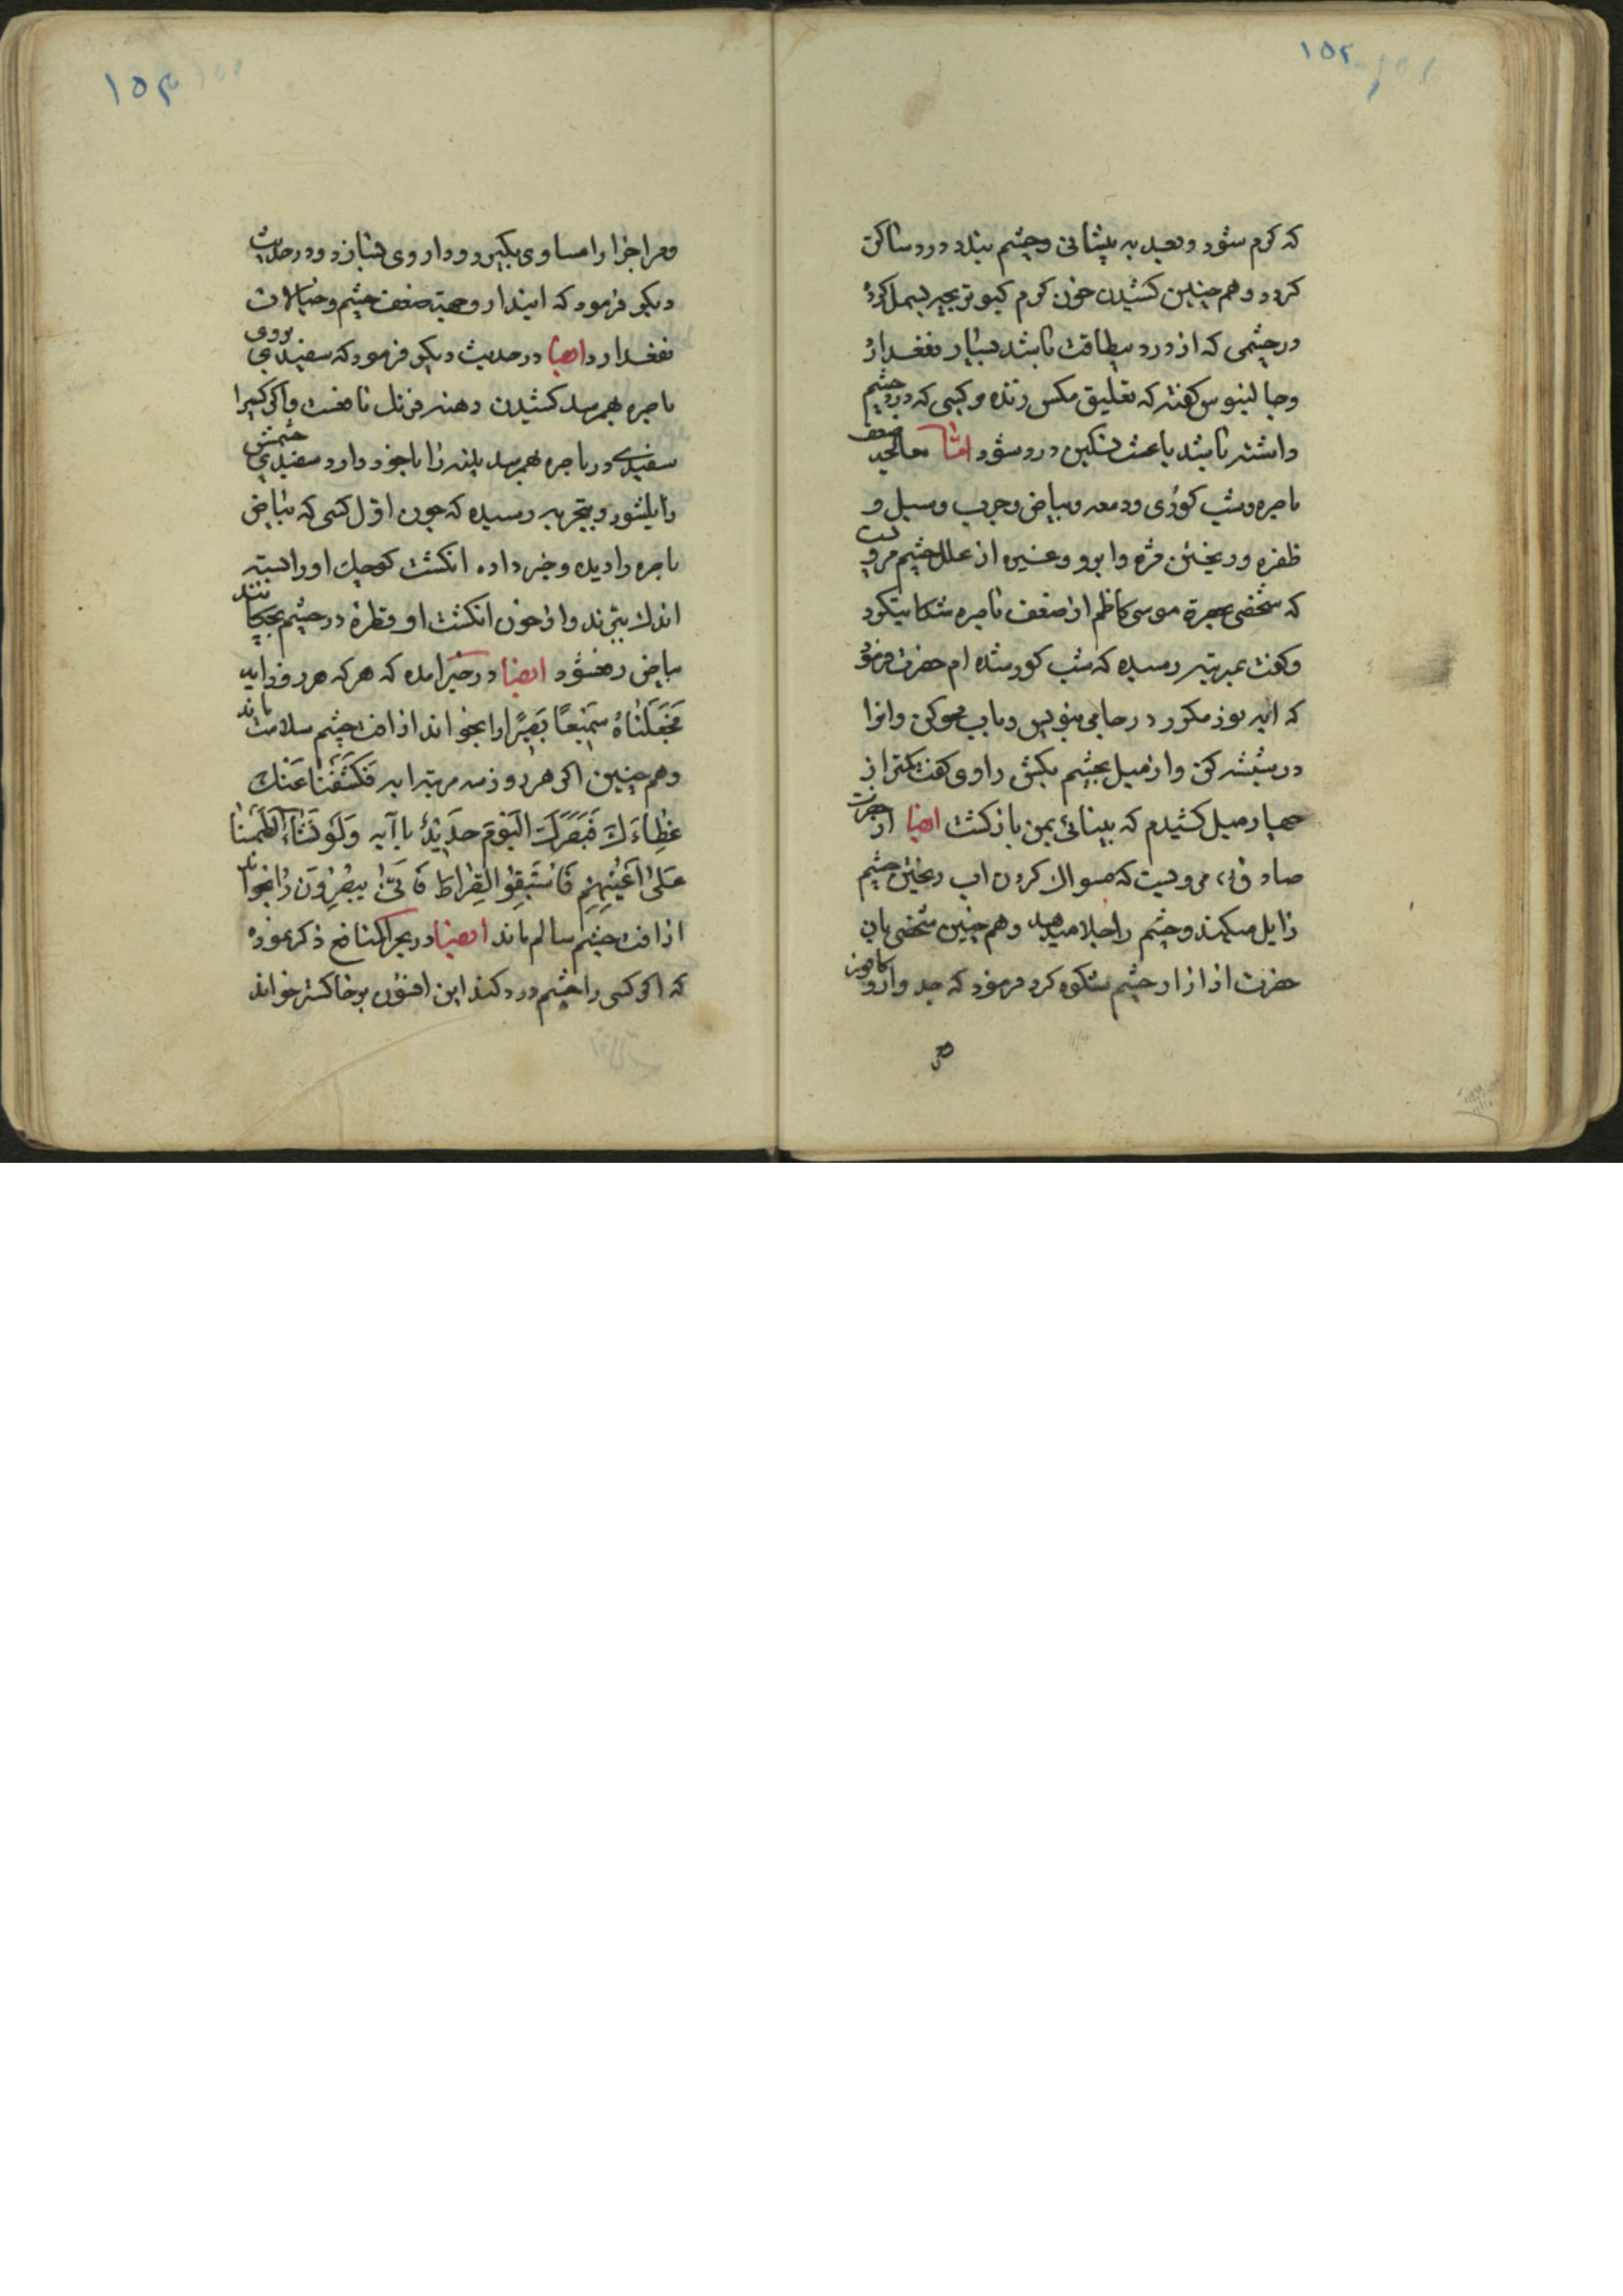 ۱۵۲
که کرم شود و بعد به پیشانی و چشم بندد درد ساکن
کردد و هم چنین کشیدن خون کرم کبوتر بچه بسمل کرده
در چشمی که از درد بیطاقت باشد بسیار نفغدارد
و جالینوس کفته که تعلیق مکس زنده بر کسی که درد چشم
داشته باشد باعث تسکین درد شود اما معالجه ضعف
باصره و شب کوری و دمعه و بیاض و جرب و سبل و
ظفره و ریختن مژه و ابرو و غیره از علل چشم مرویست
که شخصی بحضرة موسی کاظم از ضعف باصره شکایتکرد
و کفت بمرتبه رسیده که شب کور شده ام حضرت فرمود
که ایه نور مکرر در جامی بنویس و باب محو کن و انرا
در شیشه کن و از میل بچشم بکش راوی کفت کمتر از
صبار میل کشیدم که بینائی بمن باز کشت ایضا از حضرت
صادق مرویست که مسواک کردن اب ریختن چشم
زایل میکند و چشم را جلا میدهد و هم چنین شخصی بان
حضرت از ازار چشم شکوه کرد فرمود که جدوار و کافور
۱۵۳
اجزا را مساوی بکیر و داروی بساز و در حدیث
دیکر فرمود که ایندارو جهته ضعف چشم و خیالات
نفغدارد ایضا در حدیث دیکر فرمود که سفیدی بروی
باصره بهمرسد کشیدن دهنه فرنک نافعست و اکر کسیرا
سفیدی در باصره بهمرسد پنیر را با خود دارد سفیدی چشمش
زایلشود و بتجربه رسیده که چون اول کسی که بیاض
باصره را دیده و خبر داده انکشت کوچک او را بسته
اندک بتیزند و از خون انکشت او قطره در چشم بچکانند
بیاض رفعشود ایضا در خبر امده که هر که هر روز ایه
فَجَعَلْنَاهُ سَمِیعًا بَصِیرًا را بخواند از افت چشم سلامت ماند
و هم چنین اکر هر روز سه مرتبه ایه فَکَشَفْنَا عَنْکَ
غِطَاءَكَ فَبَصَرُكَ الْیَوْمَ حَدِیْدٌ با آیه وَلَوْ نَشَاءُ لَطَمَسْنَا
عَلَی اَعْیُنِهِمْ فَاسْتَبَقُوا الصِّرَاطَ فَاَنَّیٰ یُبْصِرُونَ را بخواند
از افت چشم سالم ماند ایضا در بحر المنافع ذکر نموده
که اکر کسی را چشم درد کند این افسون بر خاکستر خواند